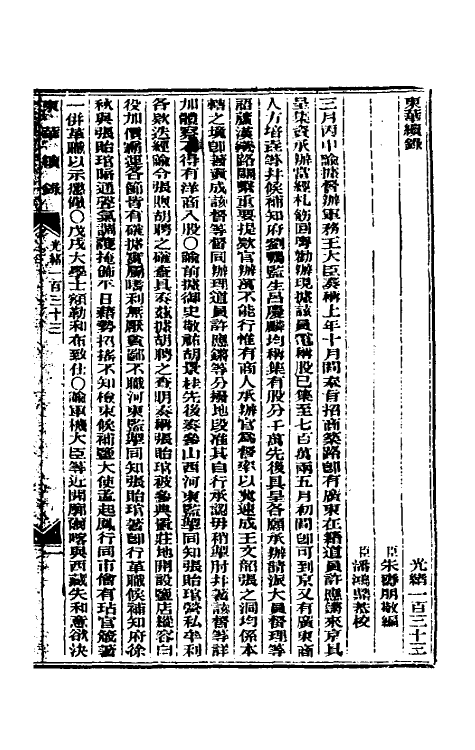 東華續錄
光緒一百三十三
臣朱壽朋敬編
臣潘鴻鼎恭校
三月丙申諭據督辦軍務王大臣奏稱上年十月間奉旨招商築路即有廣東在籍道員許應鏘來京具
呈集資承辦當經札飭回粵勸辦現據該員電稱股已集至七百萬兩五月初間即可到京又有廣東商
人方培垚等并候補知府劉鶚監生呂慶麟均稱集有股分千萬先後具呈各願承辦請派大員督理等
語蘆漢鐵路關繫重要提款官辦萬不能行惟有商人承辦官為督率以冀速成王文韶張之洞均係本
轄之境即著責成該督等會同辦理道員許應鏘等分辦地段准其自行承認毋稍掣肘并著該督等詳
加體察不得有洋商入股〇諭前據御史敬祐胡景桂先後奏參山西河東監掣同知張貽琯營私牟利
各款迭經諭令張煦胡聘之確查具奏茲據胡聘之查明奏稱張貽琯被參典當莊地開設鹽店縱容白
役加價漏運各節皆有確據實屬嗜利無厭貪鄙不職河東監掣同知張貽琯著即行革職候補知府徐
秋與張貽琯暗通聲氣調護掩飾平日藉勢招搖不知檢束候補鹽大使孟起鳳行同市儈有玷官箴著
一併革職以示懲儆〇戊戌大學士額勒和布致仕〇諭軍機大臣等近聞廓爾喀與西藏失和意欲決
東華續錄
光緒一百三十三
一